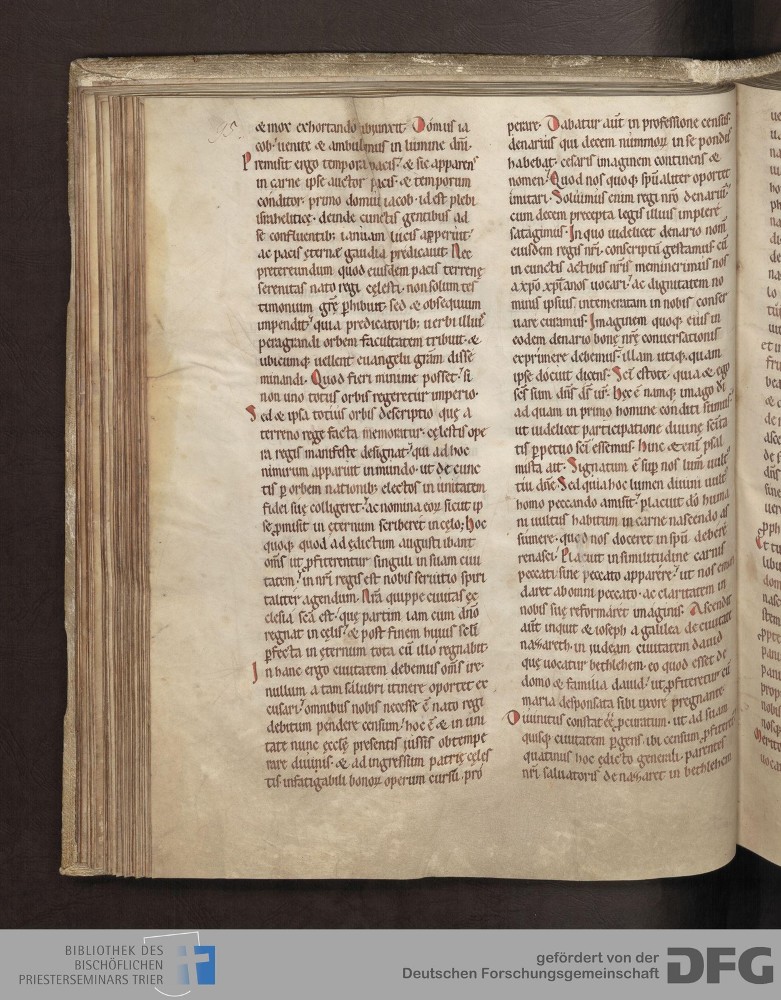 & mox exhortando iniunxit. Domus ia
cob. uenite & ambulemus in lumine dni.
Premisit ergo tempora pacis. & sic apparens
in carne ipse auctor pacis & temporum
conditor. primo domui iacob. id est plebi
israheliticę. deinde cunctis gentibus ad
se confluentib; ianuam lucis apperuit.
ac pacis eternę gaudia predicauit. Nec
pretereundum quod eiusdem pacis terrenę
serenitas nato regi cęlesti. non solum tes
timonium grę phibuit. sed & obsequium
impendit. quia predicatorib; uerbi illius
peragrandi orbem facultatem tribuit. &
ubicumq; uellent euangelii gram disse
minandi. Quod fieri minime posset. si
non uno totus orbis regeretur imperio.
Sed & ipsa totius orbis descriptio quę a
terreno rege facta memoratur. cęlestis ope
ra regis manifeste designat. qui ad hoc
nimirum apparuit in mundo. ut de cunc
tis p orbem nationib; electos in unitatem
fidei suę colligeret. ac nomina eoꝝ sicut ip
se ꝓmisit in ęternum scriberet in cęlo; Hoc
quoq; quod ad ędictum augusti ibant
oms ut ꝓfiterentur singuli in suam ciui
tatem. in nri regis est nobis seruitio spiri
taliter agendum. Nra quippe ciuitas ęc
clesia sca est. quę partim iam cum dno
regnat in cęlis. & post finem huius scli
pfecta in ęternum tota cū illo regnabit.
In hanc ergo ciuitatem debemus oms ire.
nullum a tam salubri itinere oportet ex
cusari. omnibus nobis necesse ē nato regi
debitum pendere censum. hoc ē & in uni
tate nunc ęccłę presentis iussis obtempe
rare diuinis. & ad ingressum patrię cęles
tis infatigabili bonoꝝ operum cursu pro
perare. Dabatur aūt in professione census
denarius qui decem nummoꝝ in se pondus
habebat. cesaris imaginem continens &
nomen. Quod nos quoq; spūaliter oportet
imitari. Soluimus enim regi nro denariū.
cum decem precepta legis illius implere
satagimus. In quo uidelicet denario nom
eiusdem regis nri. conscriptū gestamus cū
in cunctis actibus nris meminerimus nos
a xpo xpianos uocari. ac dignitatem no
minis ipsius intemeratam in nobis conser
uare curamus. Imaginem quoq; eius in
eodem denario bonę nrę conuersationis
exprimere debemus. illam utiq; quam
ipse docuit dicens. Sci estote. quia & ego
scs sum dns ds ur. Hęc ē namq; imago di
ad quam in primo homine conditi sumus.
ut uidelicet participatione diuinę scita
tis ppetuo sci essemus. Hinc & eni psal
mista ait. Signatum ē sup nos lum uult
tui dne. Sed quia hoc lumen diuini uult
homo peccando amisit. placuit do huma
ni uultus habitum in carne nascendo as
sumere. quo nos doceret in spu debere
renasci. Placuit in similitudine carnis
peccati sine peccato apparere. ut nos emun
daret ab omni peccato. ac claritatem in
nobis suę reformaret imaginis. Ascendit
aūt inquit & ioseph a galilea de ciuitate
nazareth. in iudeam ciuitatem dauid
quę uocatur bethlehem. eo quod esset de
domo & familia dauid. ut ꝓfiteretur cū
maria desponsata sibi uxore pregnante.
Diuinitus constat eē pcuratum. ut ad suam
quisq; ciuitatem pgens. ibi censum ꝓfiteret
quatinus hoc ędicto generali. parentes
nri saluatoris de nazaret in bethlehem
BIBLIOTHEK DES
BISCHÖFLICHEN
PRIESTERSEMINARS TRIER
gefördert von der
Deutschen Forschungsgemeinschaft
DFG